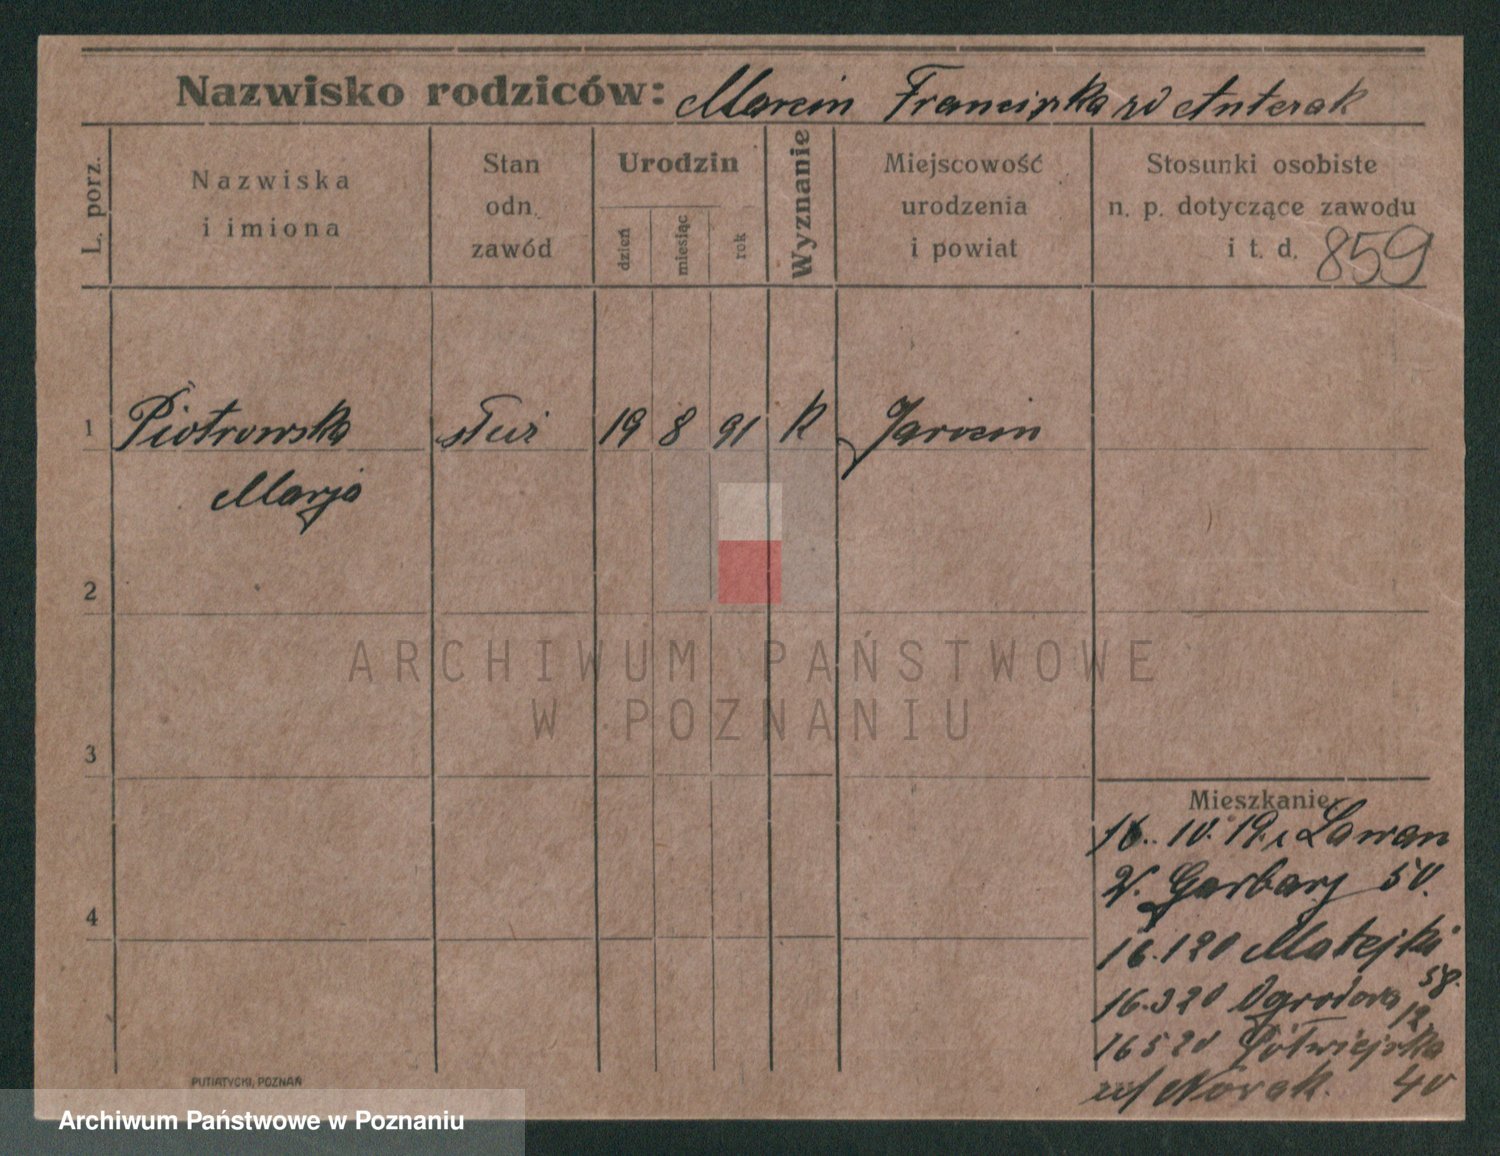 Nazwisko rodziców: Marcin Franciszka zd Anterak
L. porz.
Nazwiska
i imiona
Stan
odn.
zawód
Urodzin
dzień
miesiąc
rok
Wyznanie
Miejscowość
urodzenia
i powiat
Stosunki osobiste
n. p. dotyczące zawodu
i t. d. 859
1 Piotrowska służ 19 8 91 k Jarocin
Marja
2
ARCHIWUM PAŃSTWOWE
W POZNANIU
3
Mieszkanie
16. 10. 19. z
Garbary 50.
4
16.1 20 Matejki
58.
16.3 20 Ogrodowa
12
16 5 20 Półwiejska
Novak. 40
PUTIATYCKI, POZNAŃ
Archiwum Państwowe w Poznaniu